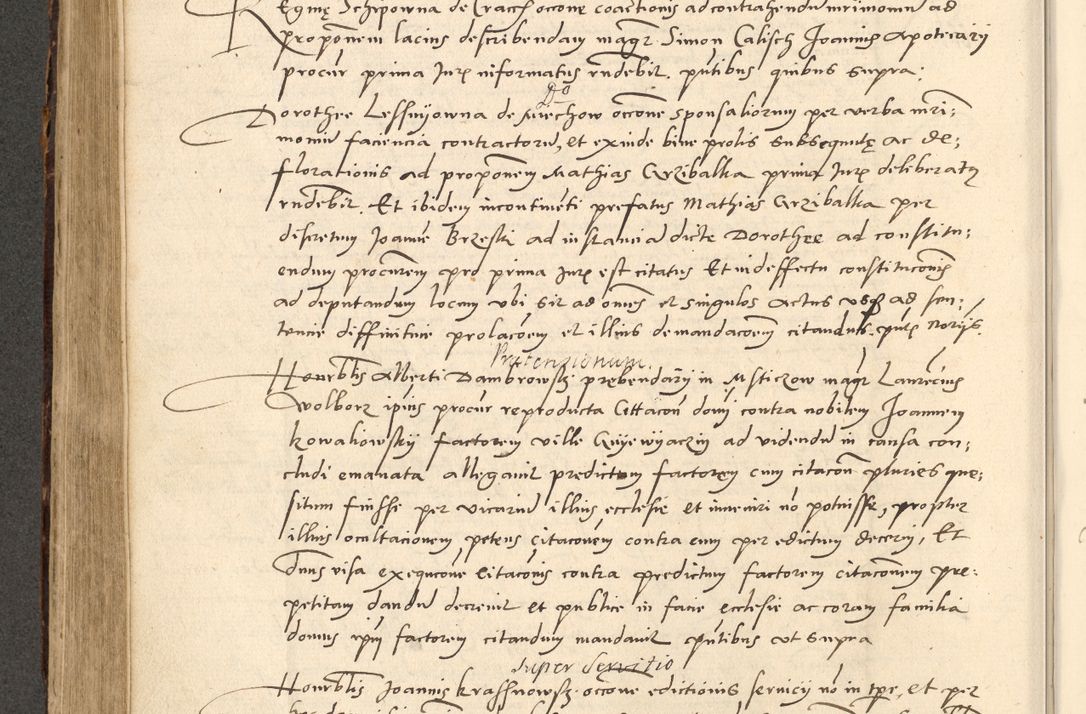 Regine Schipowna de Cracov occone coactionis ad contrahendum mrimonium ad
proponem lacius describendam magr Simon Calisch Joannis Apotecarij
procur prima Juris informatus rndebit. pntibus quibus supra.
Dorothee Lessnyowna de Miechow occone sponsaliorum per verba mri:
monium faciencia contractorum, et exinde bine prolis subsequute ac de:
florationis ad proponem Mathias Grzibalka prima Juris deliberatus
rndebit. Et ibidem incontinenti prefatus Mathias Grzibalka per
discretum Joanne Brzeski ad instancia dicte Dorothee ad constitu:
endum procurem pro prima Juris est citatus Et in deffectu constitucionis
ad deputandum locum ubi sit ad omnes et singulos actus usque ad sen:
tencie diffinitive prolacoem et illius demandacoem citandus. pntibus Notariis
Pretenzionum.
Honrblis Alberti Dambrowsky prebendarij in Msticzow magr Laurencius
Wolborz ipius procur reproducta Cittacon domi contra nobilem Joannem
Kowalowskij factorem ville Gnyewyaczin ad videndum in causa con:
cludi emanata allegavit predictum factorem cum citacon pluries que:
situm fuisse per vicarium illius ecclesie et inveniri no potuisse, propter
illius ocultacionem, petens citaconem contra eum per edictum decerni, Et
Dnus visa exequcone Citaconis contra predictum factorem citaconem pre:
petitam dandum decrevit et publice in facie ecclesie ac coram familia
domus ipius factorem citandum mandavit pntibus ut supra
Super servitio
Honrblis Joannis Krassnowsky occone edictionis servicij no in tpe, et per